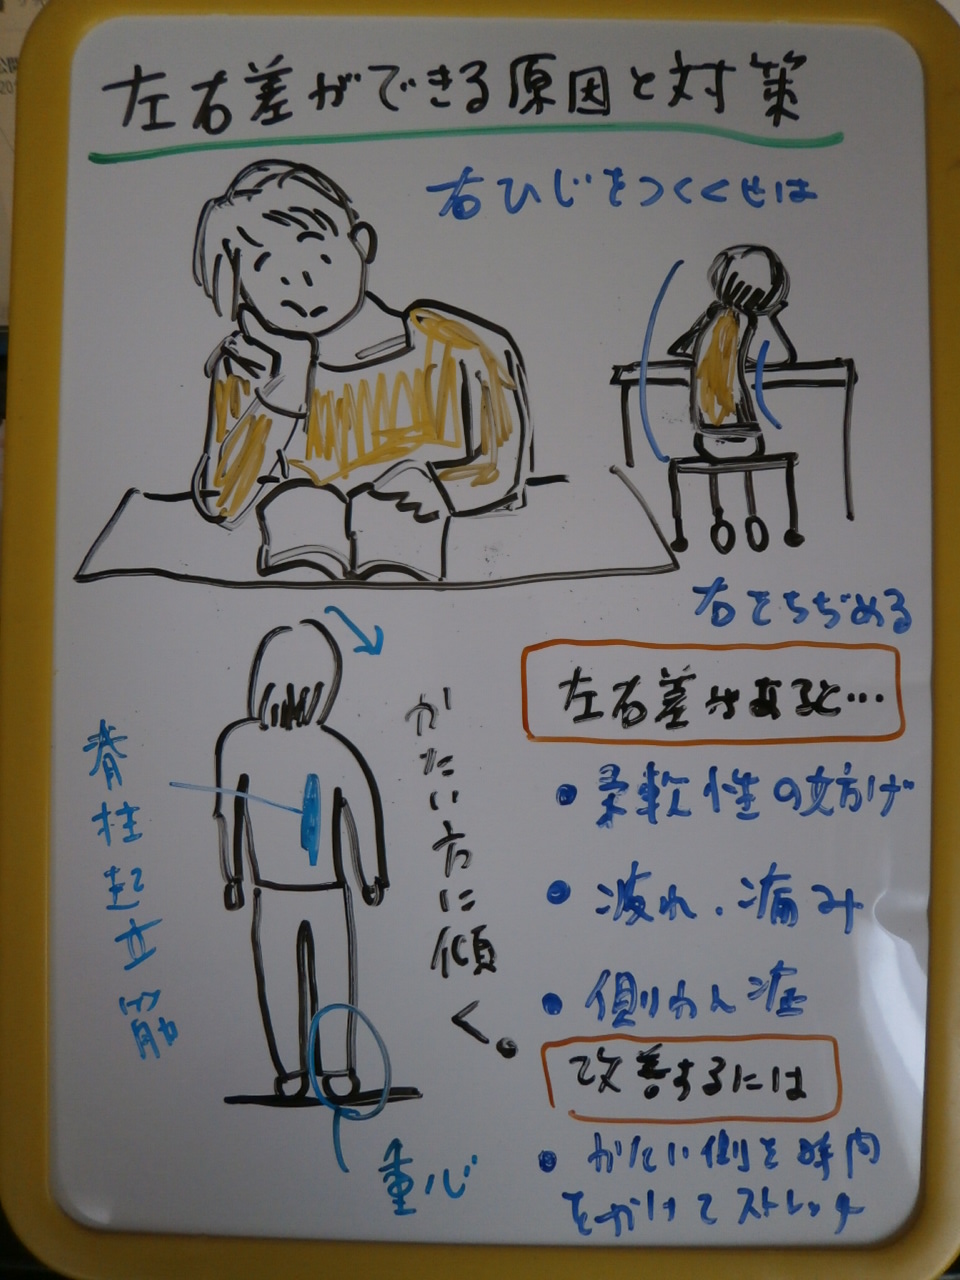 左右差ができる原因と対策
右ひじをつくくせは
右をちぢめる
脊柱起立筋
かたい方に傾く。
重心
左右差があると…
・柔軟性の妨げ
・疲れ、痛み
・側わん症
改善するには
・かたい側を時間
をかけてストレッチ